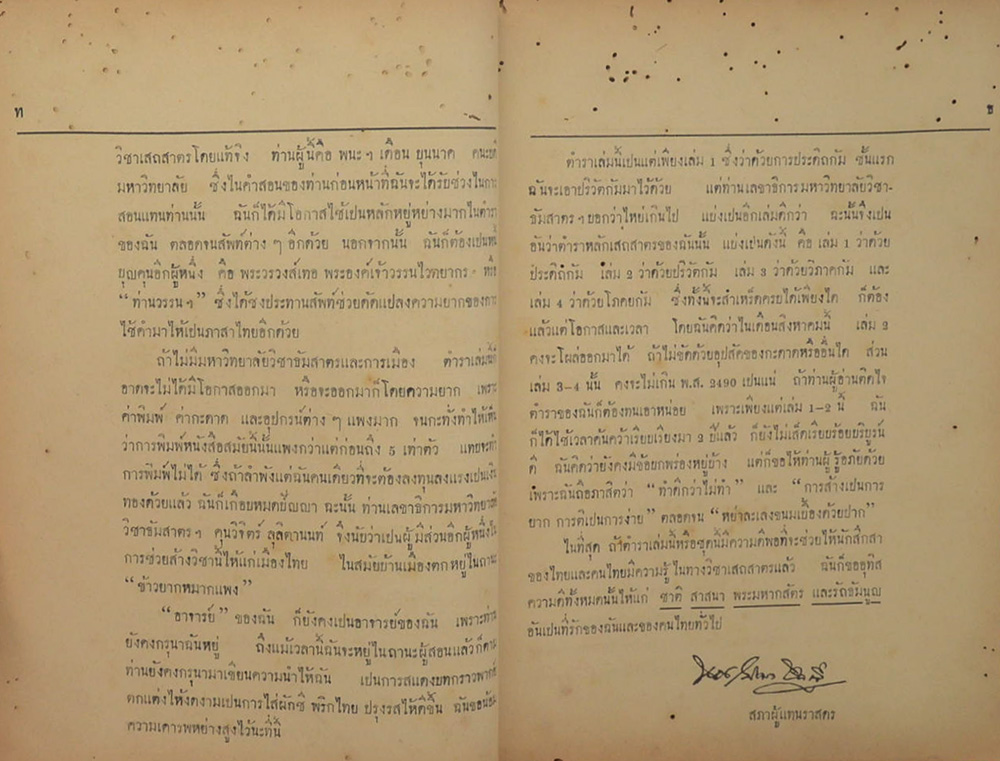 ท
วิชาเสถสาตรโดยแท้จิง ท่านผู้นี้คือ พนะฯ เดือน บุนนาค
มหาวิทยาลัย ซึ่งในคำสอนของท่านก่อนหน้าที่ฉันจะได้รับช่วงใน
สอนแทนท่านนั้น ฉันก็ได้มีโอกาสไช้เป็นหลักหยู่หย่างมากในตำรา
ของฉัน ตลอดจนสัพท์ต่าง ๆ อีกด้วย นอกจากนั้น ฉันก็ต้องเป็น
บุญคุนอีกผู้หนึ่ง คือ พระวรวงส์เทอ พระองค์เจ้าวรรนไวทยากร
“ท่านวรรนฯ” ซึ่งได้ซงประทานสัพท์ช่วยดัดแปลงความยากของการ
ไช้คำมาไห้เป็นภาสาไทยอีกด้วย
ถ้าไม่มีมหาวิทยาลัยวิชาธัมสาตรและการเมือง ตำราเล่มนี้ก็
อาดจะไม่ได้มีโอกาสออกมา หรือจะออกมาก็โดยความยาก เพราะ
ค่าพิมพ์ ค่ากะดาด และอุปกรน์ต่าง ๆ แพงมาก จนกะทั่งทำไห้เห็น
ว่าการพิมพ์หนังสือสมัยนี้นั้นแพงกว่าแต่ก่อนถึง 5 เท่าตัว แทบจะทำ
การพิมพ์ไม่ได้ ซึ่งถ้าลำพังแต่ฉันคนเดียวที่จะต้องลงทุนลงแรงเป็นเงิน
ทองด้วยแล้ว ฉันก็เกือบหมดปัญญา ฉะนั้น ท่านเลขาธิการมหาวิทยาลัย
วิชาธัมสาตรฯ คุนวิจิตร์ ลุลิตานนท์ จึงนับว่าเป็นผู้มีส่วนอีกผู้หนึ่งใน
การช่วยส้างวิชานี้ไห้แก่เมืองไทย ในสมัยบ้านเมืองตกหยู่ในถานะ
“ข้าวยากหมากแพง”
“อาจารย์” ของฉัน ก็ยังคงเป็นอาจารย์ของฉัน เพราะท่าน
ยังคงกรุนาฉันหยู่ ถึงแม้เวลานี้ฉันจะหยู่ในถานะผู้สอนแล้วก็ตาม
ท่านยังคงกรุนามาเขียนความนำไห้ฉัน เป็นการสแดงบทกราวพากย์
ตกแต่งไห้งดงามเป็นการไส่ผักชี พริกไทย ปรุงรสไห้ดีขึ้น ฉันขอน้อม
ความเคารพหย่างสูงไว้นะที่นี้
ธ
ตำราเล่มนี้เป็นแต่เพียงเล่ม 1 ซึ่งว่าด้วยการประดิถกัม ชั้นแรก
ฉันจะเอาปริวัตกัมมาไว้ด้วย แต่ท่านเลขาธิการมหาวิทยาลัยวิชา-
ธัมสาตรฯ บอกว่าไหย่เกินไป แบ่งเป็นอีกเล่มดีกว่า ฉะนั้นจึงเป็น
อันว่าตำราหลักเสถสาตรของฉันนั้น แบ่งเป็นดังนี้ คือ เล่ม 1 ว่าด้วย
ประดิถกัม เล่ม 2 ว่าด้วยปริวัตกัม เล่ม 3 ว่าด้วยวิภาคกัม และ
เล่ม 4 ว่าด้วยโภคยกัม ซึ่งทั้งนี้จะสำเหร็ดครบได้เพียงได ก็ต้อง
แล้วแต่โอกาสและเวลา โดยฉันคิดว่าในเดือนสิงหาคมนี้ เล่ม 2
คงจะโผล่ออกมาได้ ถ้าไม่ขัดด้วยอุปสัคของกะดาดหรืออื่นได ส่วน
เล่ม 3-4 นั้น คงจะไม่เกิน พ.ส. 2490 เป็นแน่ ถ้าท่านผู้อ่านติดใจ
ตำราของฉันก็ต้องทนเอาหน่อย เพราะเพียงแต่เล่ม 1-2 นี้ ฉัน
ก็ได้ไช้เวลาค้นคว้าเรียบเรียงมา 2 ปีแล้ว ก็ยังไม่เส็ดเรียบร้อยบริบูรน์
ดี ฉันคิดว่ายังคงมีข้อบกพร่องหยู่บ้าง แต่ก็ขอไห้ท่านผู้รู้อภัยด้วย
เพราะฉันถือภาสิตว่า “ทำดีกว่าไม่ทำ” และ “การส้างเป็นการ
ยาก การติเป็นการง่าย” ตลอดจน “หย่าละเลงขนมเบื้องด้วยปาก”
ในที่สุด ถ้าตำราเล่มนี้หรือชุดนี้มีความดีพอที่จะช่วยไห้นักสึกสา
ของไทยและคนไทยมีความรู้ในทางวิชาเสถสาตรแล้ว ฉันก็ขออุทิส
ความดีทั้งหมดนั้นไห้แก่ ชาติ สาสนา พระมหากสัตร และรัถธัมนูญ
อันเป็นที่รักของฉันและของคนไทยทั่วไป
สภาผู้แทนราสดร